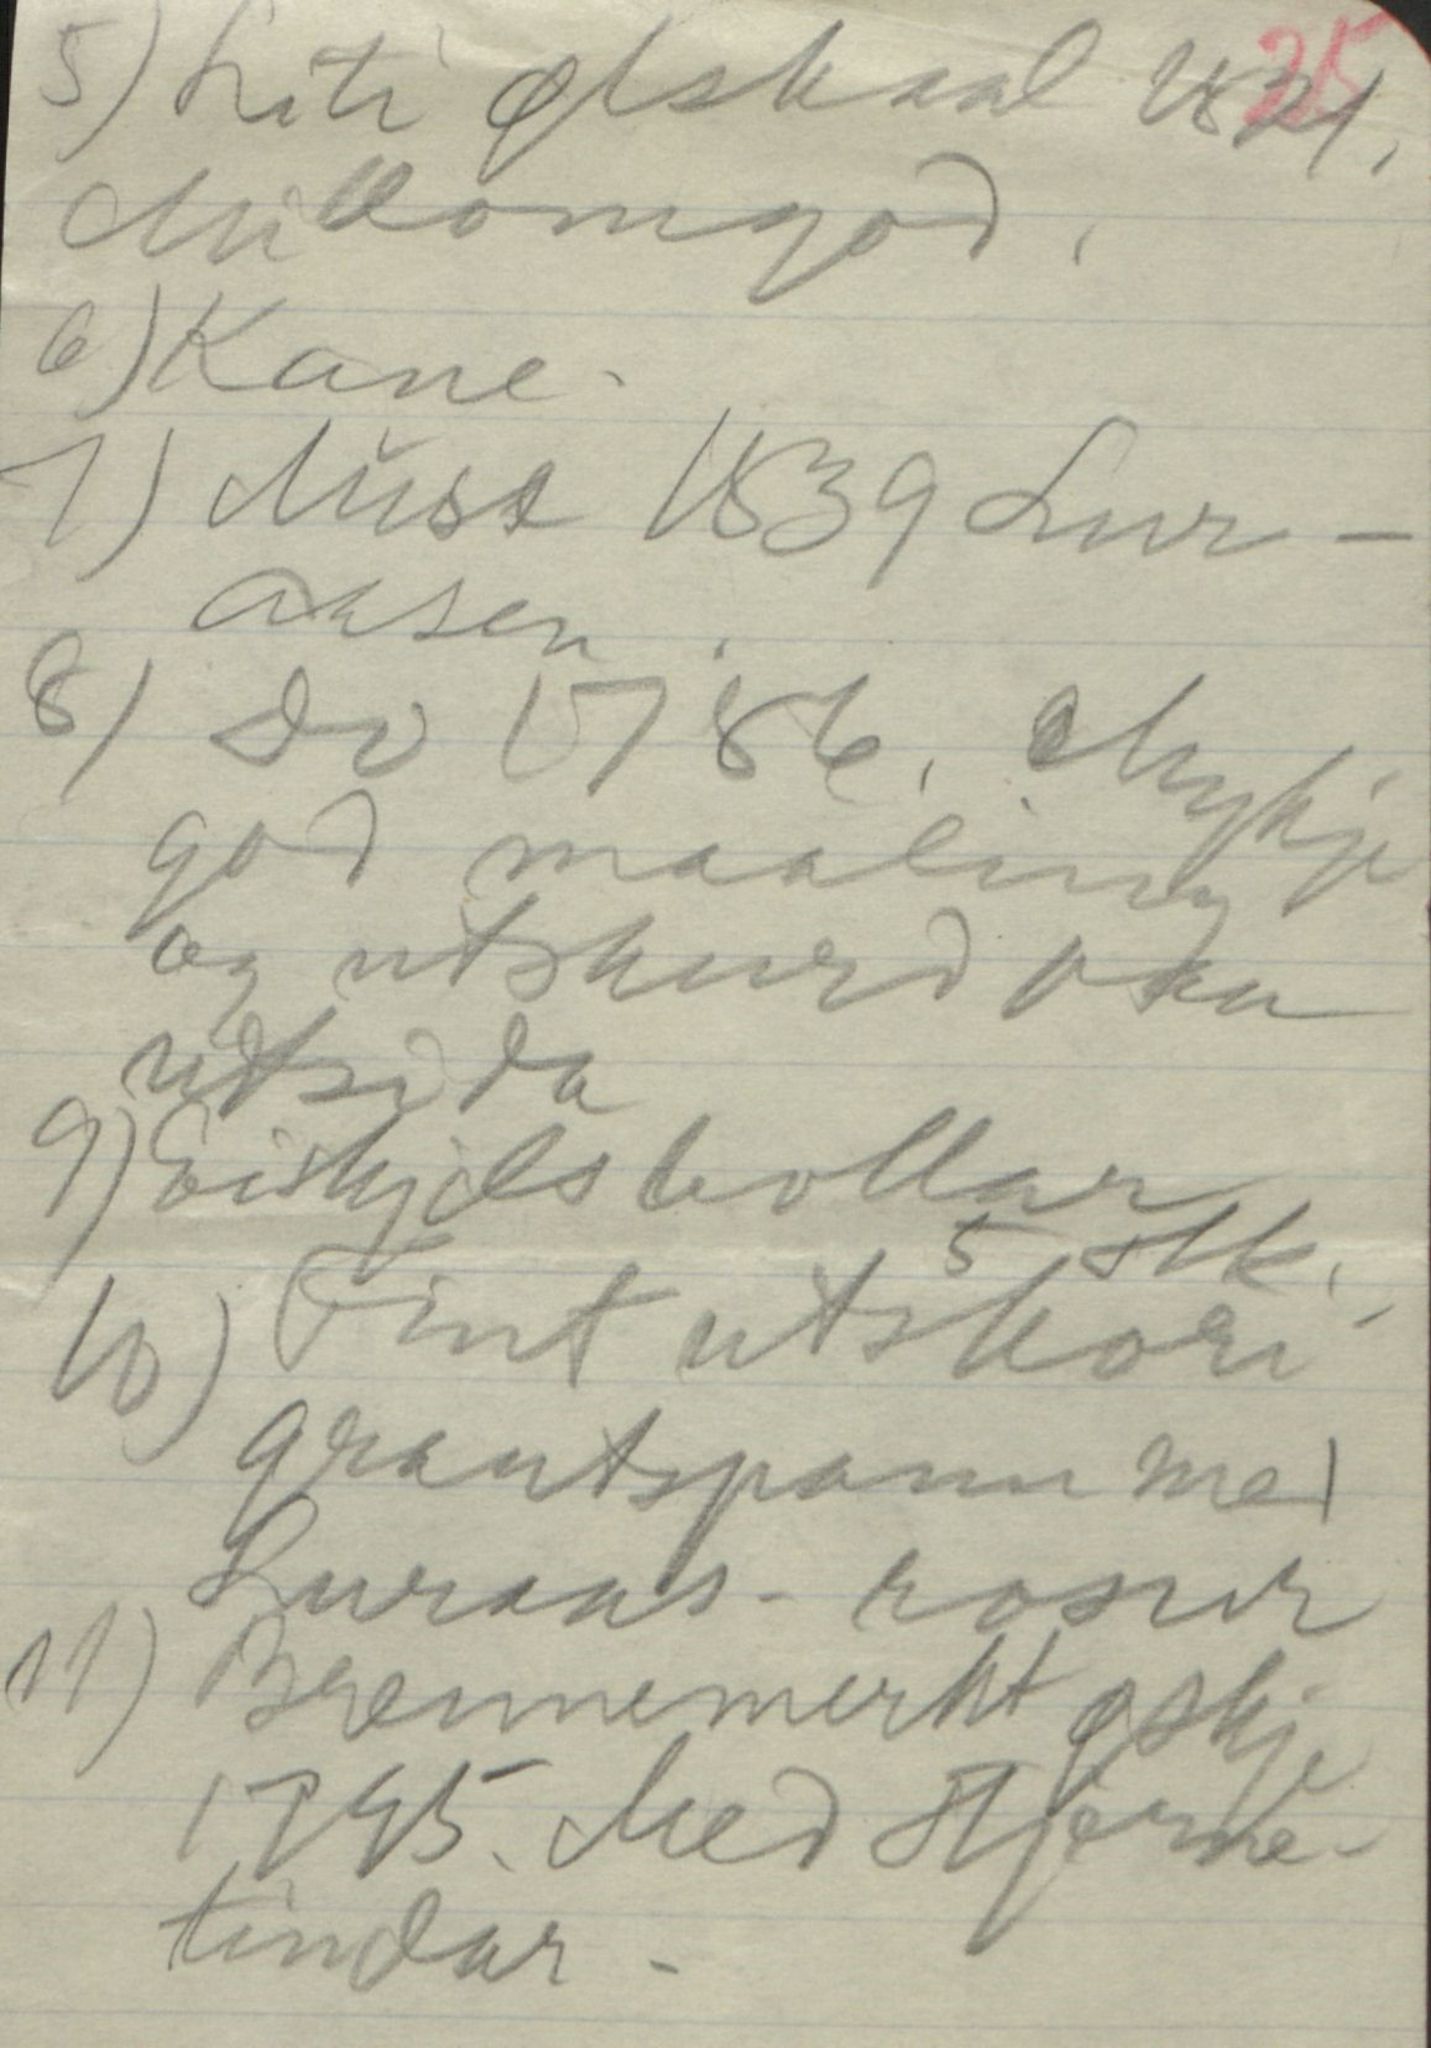 25
5) Liti ølskaal 1821,
Millomgod.
6) Kane.
7) Musa 1839 Lur-
aasen.
8) Do 1786. Mykje
god maaling
og utskurd paa
utsida
9) Eiskjelsbollar
5 stk.
10) Fint utskori
grautspann med
Luraas-rosur
11) Brennemerkt øskje
1745. Med stjerne-
tindar-